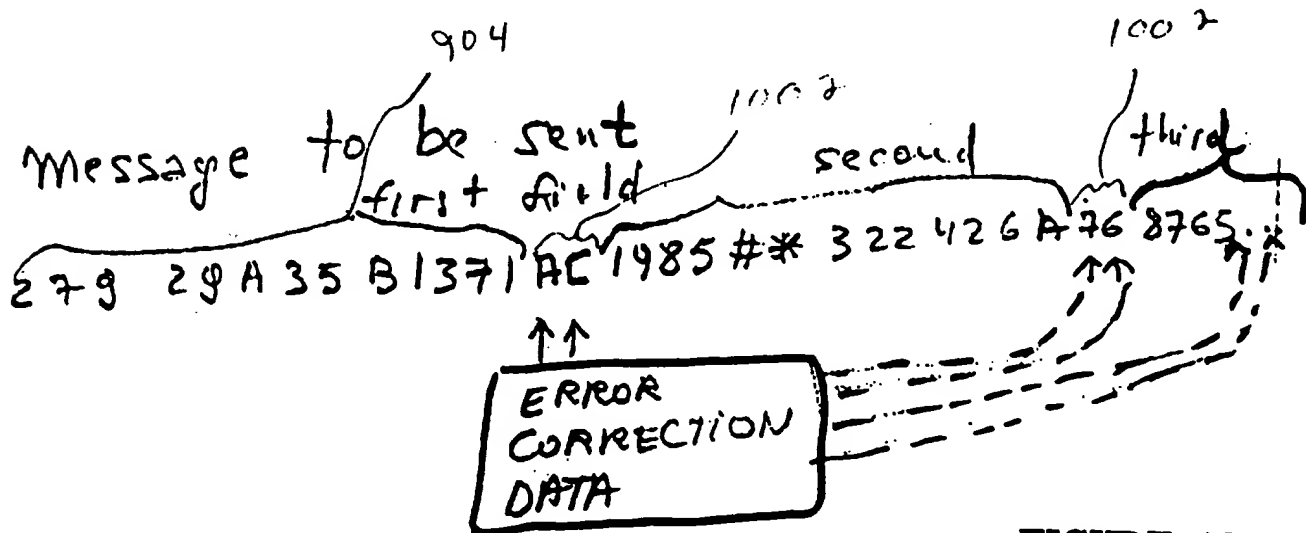 904
1002
1002
Message to be sent
first field
second
third
279 29A 35 B1371 AC 1985 #* 322 426A 76 8765..
ERROR
CORRECTION
DATA